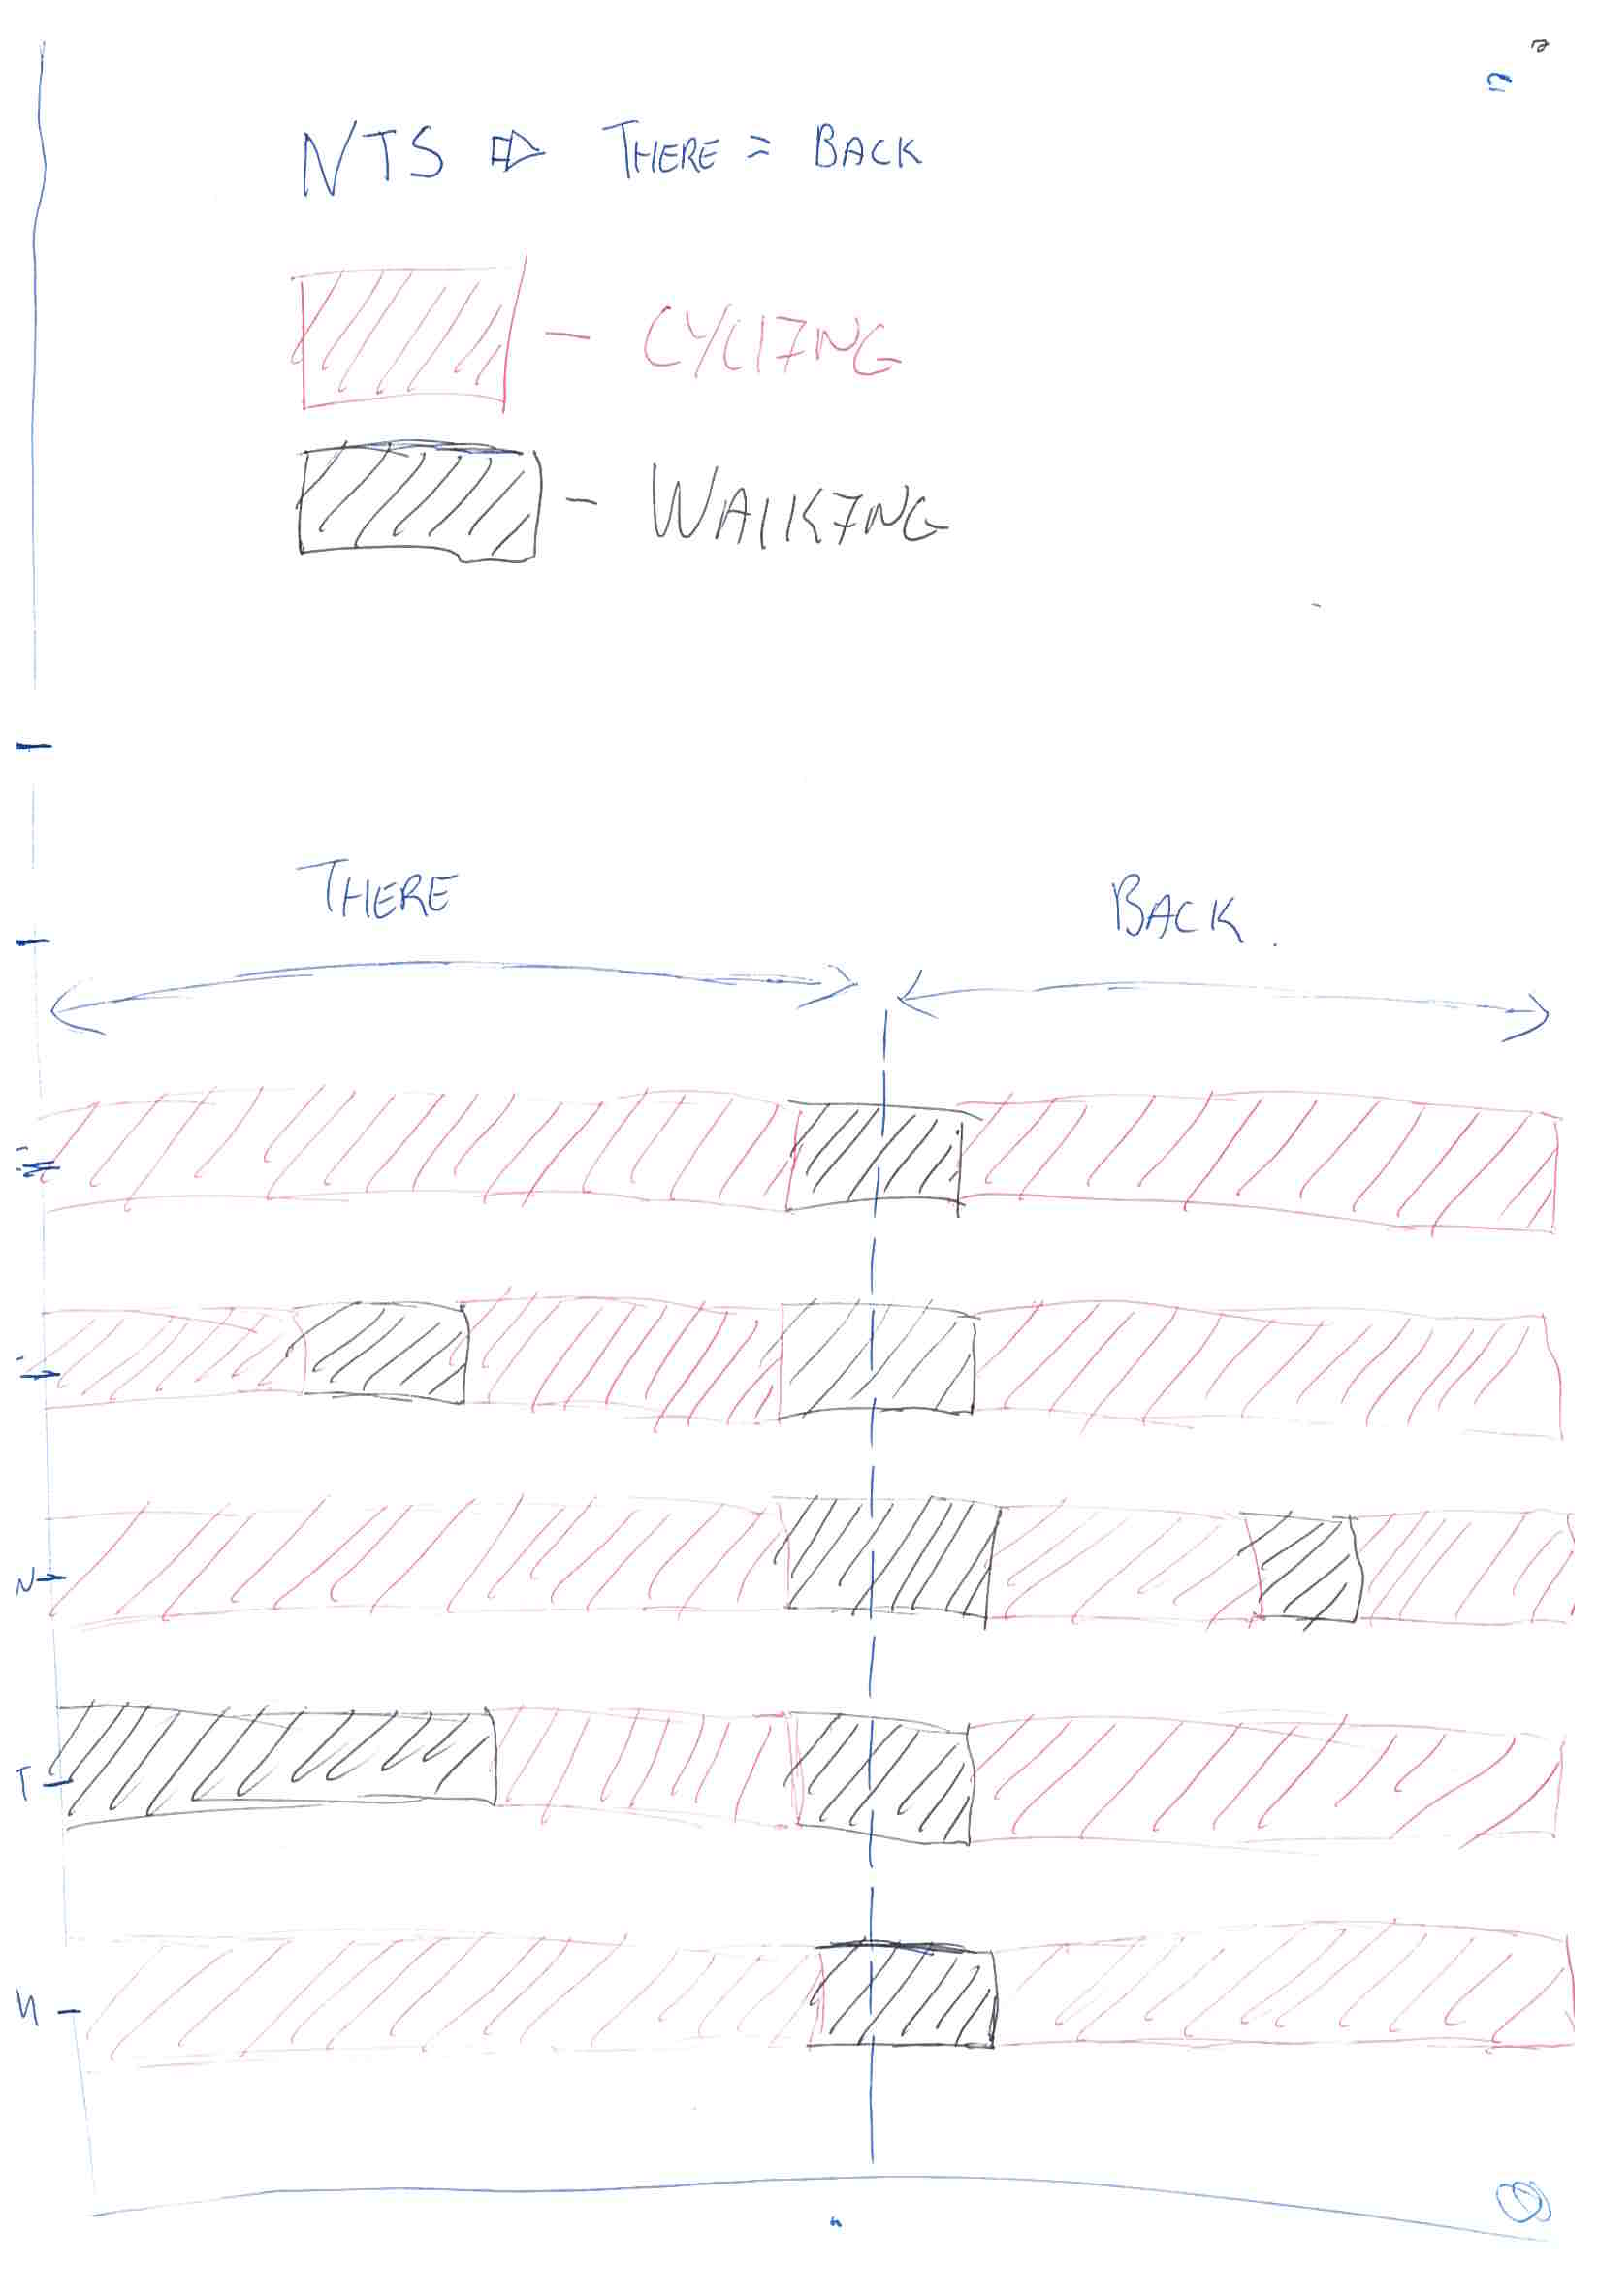 NTS ⇨ THERE = BACK
- CYCLING
- WALKING
THERE
BACK.
N
T